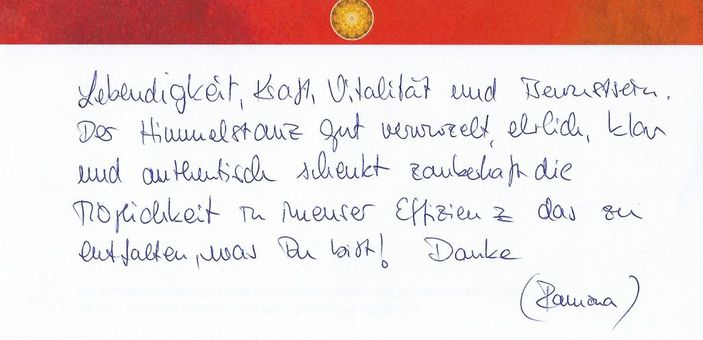 Lebendigkeit, Kraft, Vitalität und Bewusstsein.
Der Himmelstanz gut verwurzelt, ehrlich, klar
und authentisch schenkt zauberhaft die
Möglichkeit in immenser Effizienz das zu
entfalten, was Du bist! Danke
(Ramona)